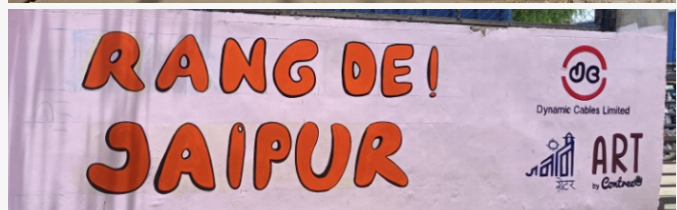 RANG DE!
JAIPUR
Dynamic Cables Limited
ग्रेटर
ART
by Contree